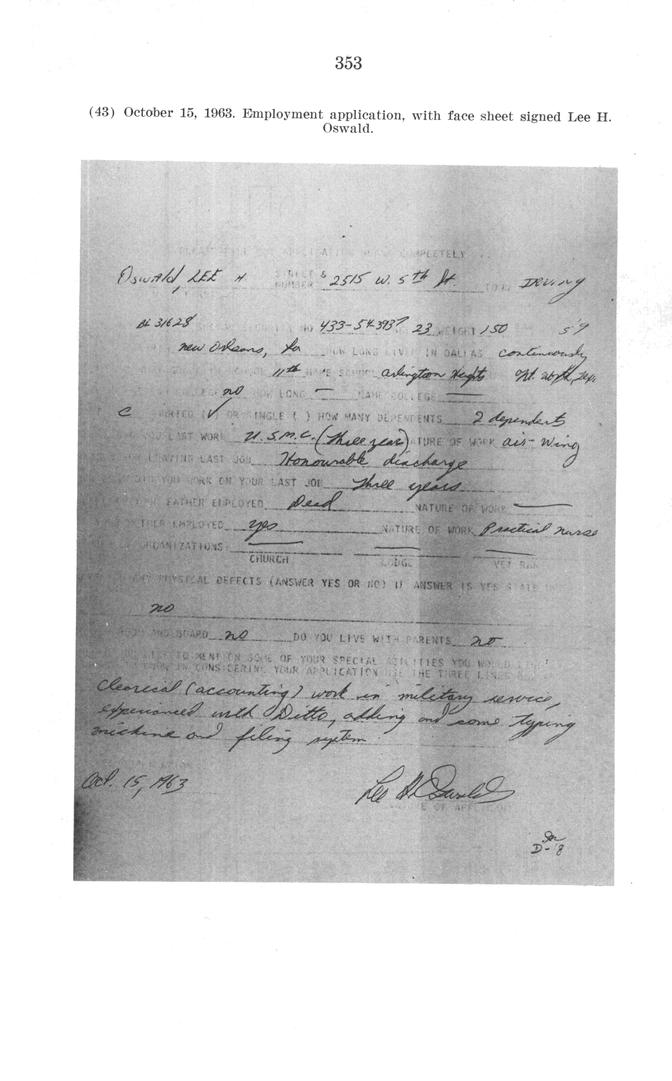 353
(43) October 15, 1963. Employment application, with face sheet signed Lee H.
Oswald.
COMPLETELY
Oswald, LEE H STREET & NUMBER 2515 W. 5th St. Irving
BL 31628 433-54-3937 23 WEIGHT 150 5'9
New Orleans, La HOW LONG LIVED IN DALLAS continuously
11th NAME SCHOOL Arlington Heights
no HOW LONG — NAME COLLEGE —
C MARRIED (✓) OR SINGLE ( ) HOW MANY DEPENDENTS 2 dependents
LAST WORK U.S.M.C. (three years) NATURE OF WORK air-wing
LEAVING LAST JOB Honourable discharge
YOU WORK ON YOUR LAST JOB three years
FATHER EMPLOYED Dead NATURE OF WORK —
MOTHER EMPLOYED yes NATURE OF WORK Practical nurse
ORGANIZATIONS: — — —
CHURCH LODGE
ANY PHYSICAL DEFECTS (ANSWER YES OR NO) IF ANSWER IS YES STATE
no
ROOM AND BOARD no DO YOU LIVE WITH PARENTS no
TO MENTION SOME OF YOUR SPECIAL ABILITIES YOU WOULD
IN CONSIDERING YOUR APPLICATION THE THREE LINES
Clearical (accounting) work in military service,
experienced with Ditto, adding and some typing
michine and filing system
Oct. 15, 1963 Lee H Oswald
OF APPLICANT
D-8